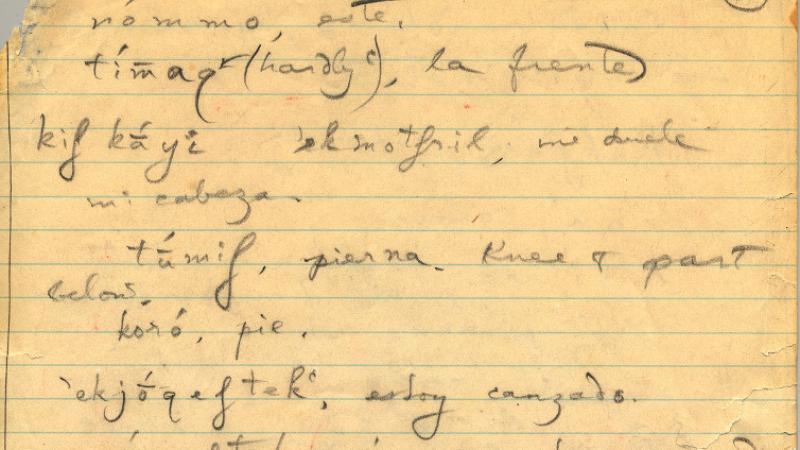 nómmo, este.
tímaqʳ (hardly ʿ), la frente
kiʃ káyi ʾekmotʃril, me duele
mi cabeza.
túmiʃ, pierna. Knee & part
below.
koró, pie.
ʾekjóqeʃtekʿ, estoy canzado.